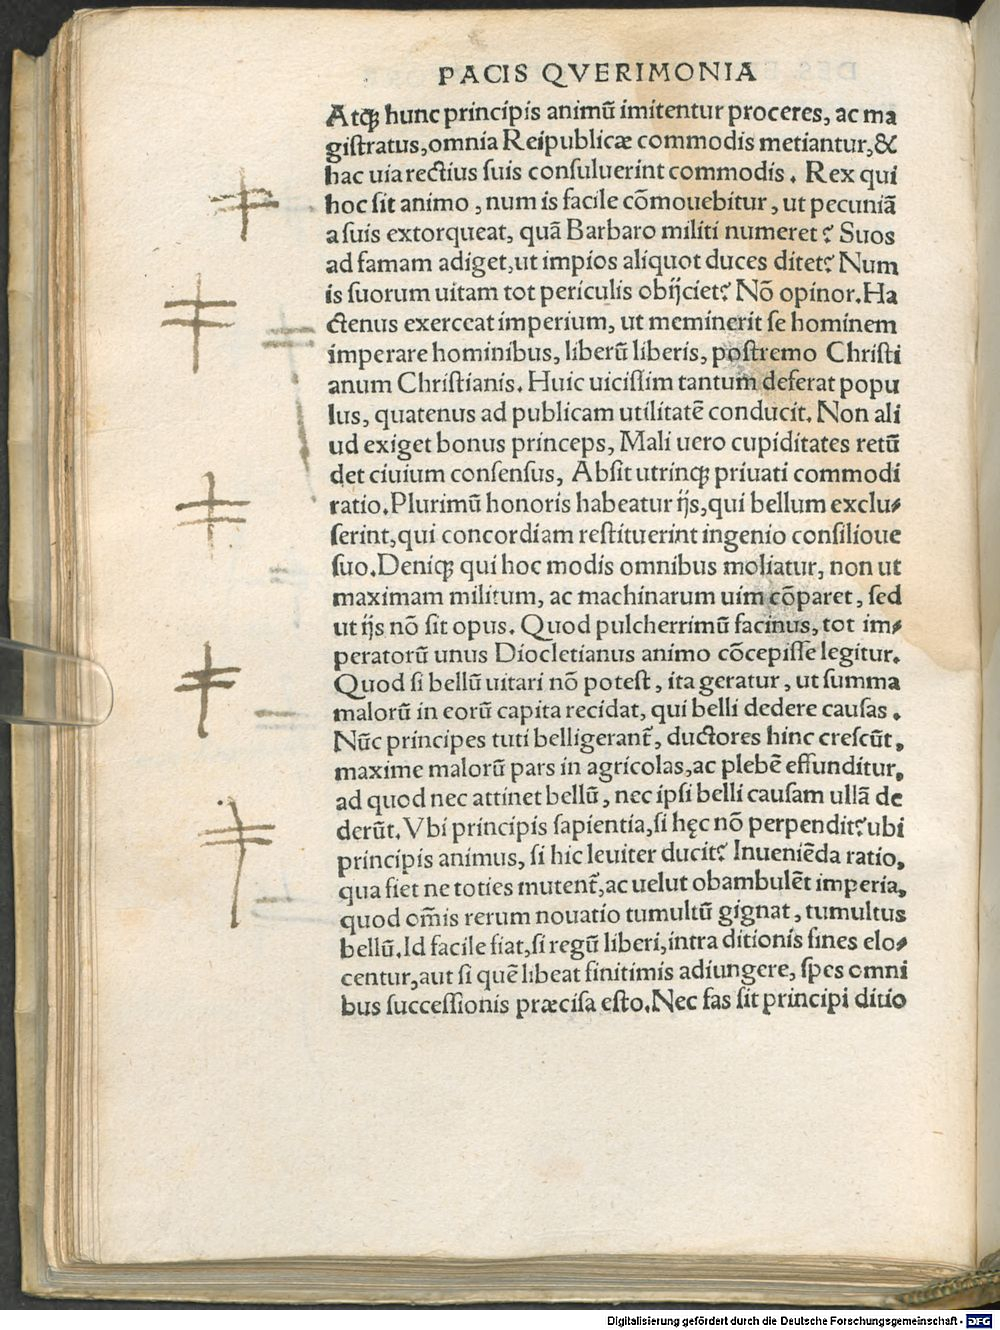 PACIS QVERIMONIA
Atq̃ hunc principis animũ imitentur proceres, ac ma
giſtratus, omnia Reipublicæ commodis metiantur, &
hac uia rectius ſuis conſuluerint commodis. Rex qui
hoc ſit animo, num is facile cõmouebitur, ut pecuniã
a ſuis extorqueat, quã Barbaro militi numeret? Suos
ad famam adiget, ut impios aliquot duces ditet? Num
is ſuorum uitam tot periculis obijciet? Nõ opinor. Ha
ctenus exerceat imperium, ut meminerit ſe hominem
imperare hominibus, liberũ liberis, poſtremo Chriſti
anum Chriſtianis. Huic uiciſſim tantum deferat popu
lus, quatenus ad publicam utilitatẽ conducit. Non ali
ud exiget bonus princeps, Mali uero cupiditates retũ
det ciuium conſenſus, Abſit utrinq̃ priuati commodi
ratio. Plurimũ honoris habeatur ijs, qui bellum exclu⸗
ſerint, qui concordiam reſtituerint ingenio conſilioue
ſuo. Deniq̃ qui hoc modis omnibus moliatur, non ut
maximam militum, ac machinarum uim cõparet, ſed
ut ijs nõ ſit opus. Quod pulcherrimũ facinus, tot im⸗
peratorũ unus Diocletianus animo cõcepiſſe legitur.
Quod ſi bellũ uitari nõ poteſt, ita geratur, ut ſumma
malorũ in eorũ capita recidat, qui belli dedere cauſas.
Nũc principes tuti belligerant᷑, ductores hinc creſcũt,
maxime malorũ pars in agricolas, ac plebẽ effunditur,
ad quod nec attinet bellũ, nec ipſi belli cauſam ullã de
derũt. Vbi principis ſapientia, ſi hęc nõ perpendit? ubi
principis animus, ſi hic leuiter ducit? Inueniẽda ratio,
qua fiet ne toties mutent᷑, ac uelut obambulẽt imperia,
quod om̃is rerum nouatio tumultũ gignat, tumultus
bellũ. Id facile fiat, ſi regũ liberi, intra ditionis fines elo⸗
centur, aut ſi quẽ libeat finitimis adiungere, ſpes omni
bus ſucceſſionis præciſa eſto. Nec fas ſit principi ditio
Digitalisierung gefördert durch die Deutsche Forschungsgemeinschaft - DFG